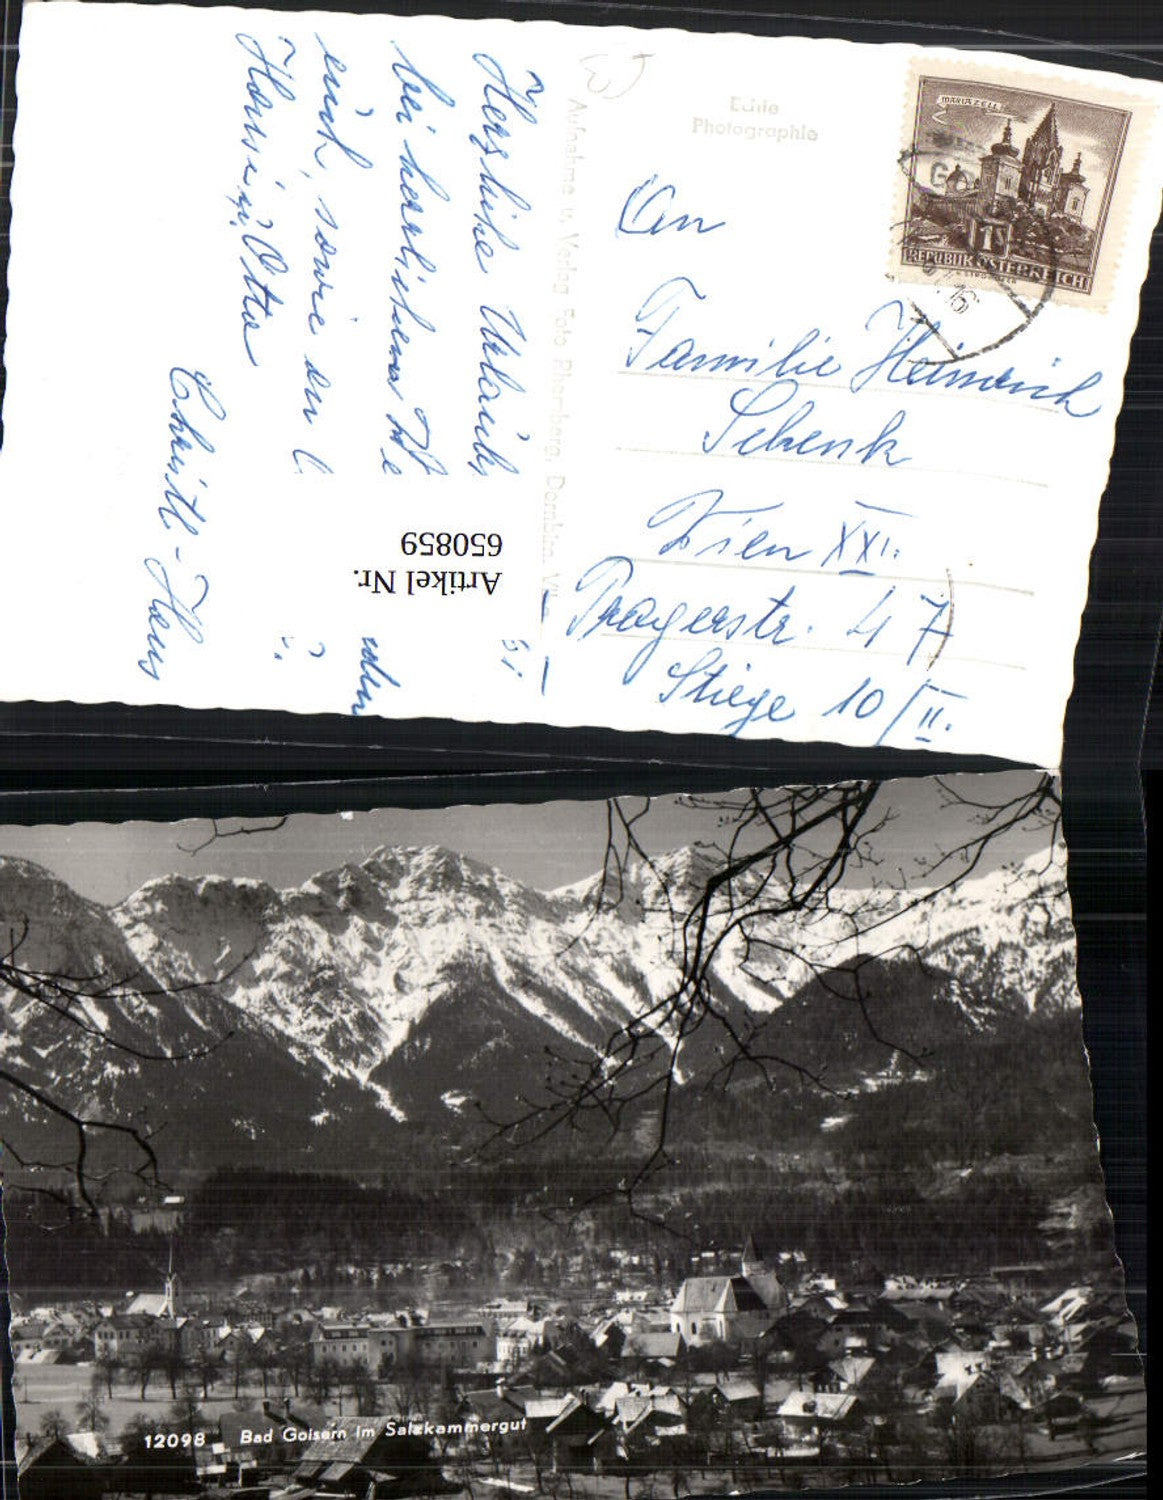 Echte
Photographie
MARIAZELL
REPUBLIK ÖSTERREICH
An
Familie Heinrich
Schenk
Wien XXI.
Pragerstr. 47
Stiege 10/II.
Herzliche Urlaubs
bei herrlichem We
euch, sowie an
Hansi u. Otto
Christl - Hans
Aufnahme u. Verlag Foto Rhomberg, Dornbirn,
Artikel Nr.
650859
12098 Bad Goisern im Salzkammergut